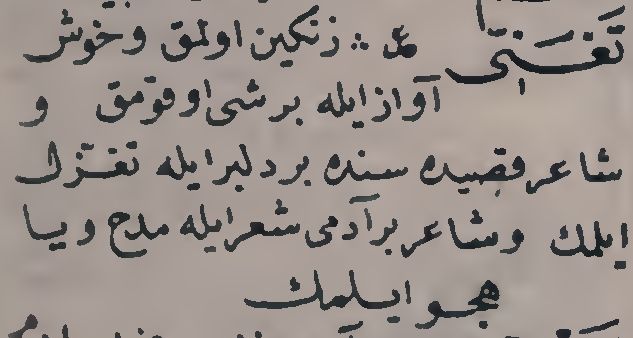 تغنى ع :: زنكين اولمق وخوش
آواز ايله بر شى اوقومق و
شاعر قصيده سنده بر دلبر ايله تغزل
ايلمك و شاعر بر آدمى شعر ايله مدح و يا
هجو ايلمك